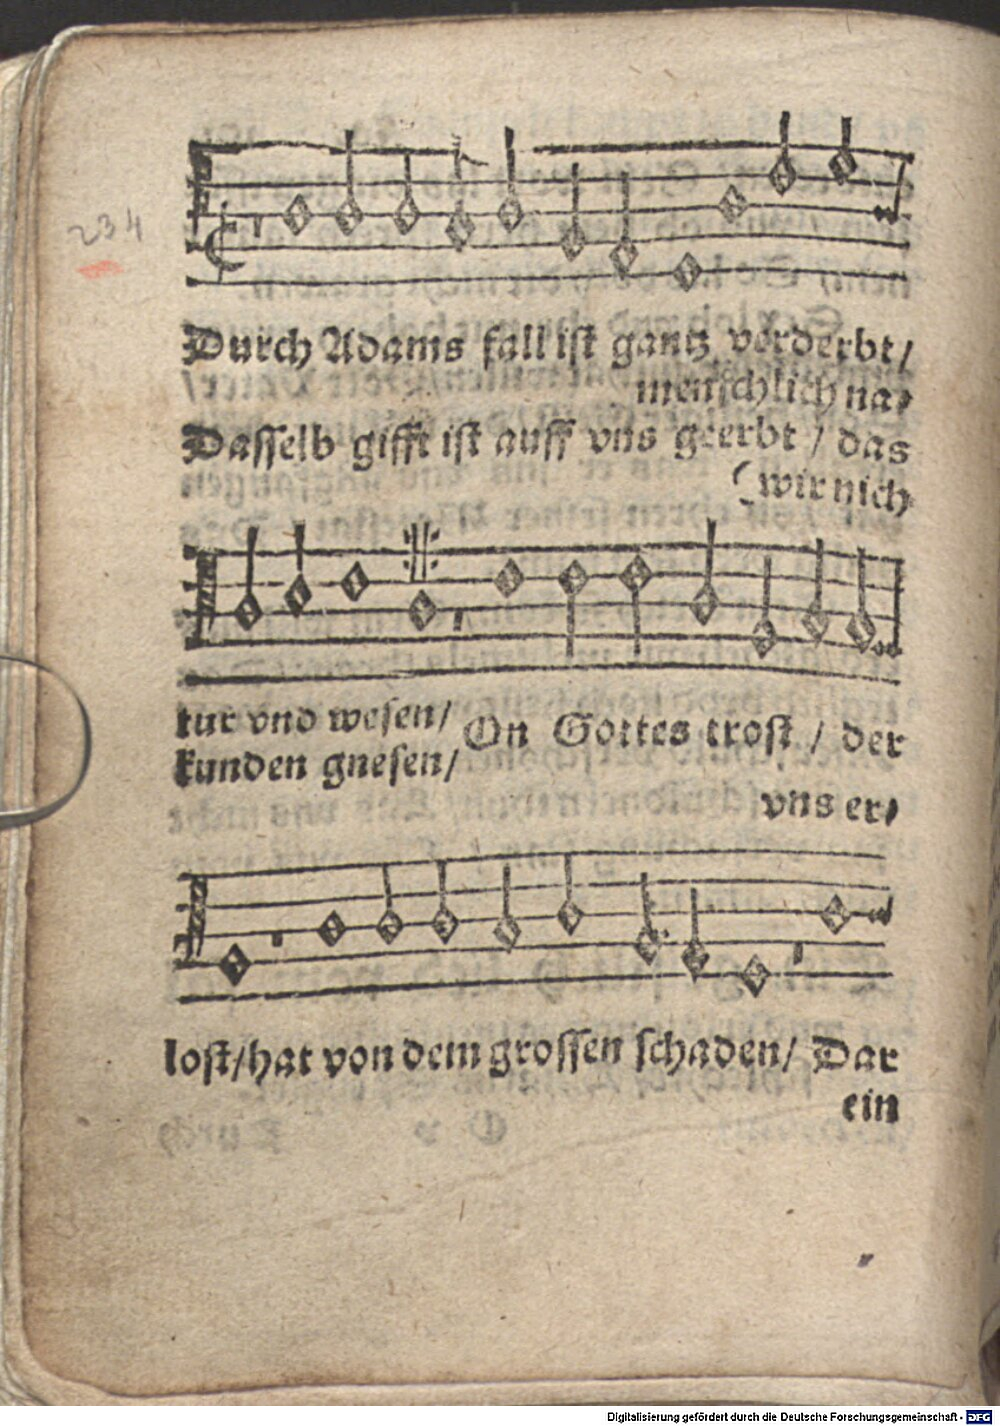 234
Durch Adams fall ist gantz verderbt/
menschlich na⸗
Dasselb gifft ist auff vns geerbt / das
(wir nich
tur vnd wesen/
kunden gnesen/
On Gottes trost / der
vns er⸗
lost/hat von dem grossen schaden/ Dar
ein
Digitalisierung gefördert durch die Deutsche Forschungsgemeinschaft - DFG